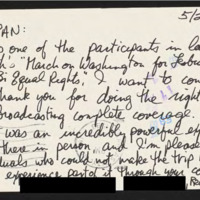 5/2
PAN:
s one of the participants in la
h "March on Washington for Lesbi
Bi Equal Rights," I want to con
thank you for doing the right
broadcasting complete coverage.
was an incredibly powerful ex
there in person and I'm please
duals who could not make the trip w
experience part of it through your co